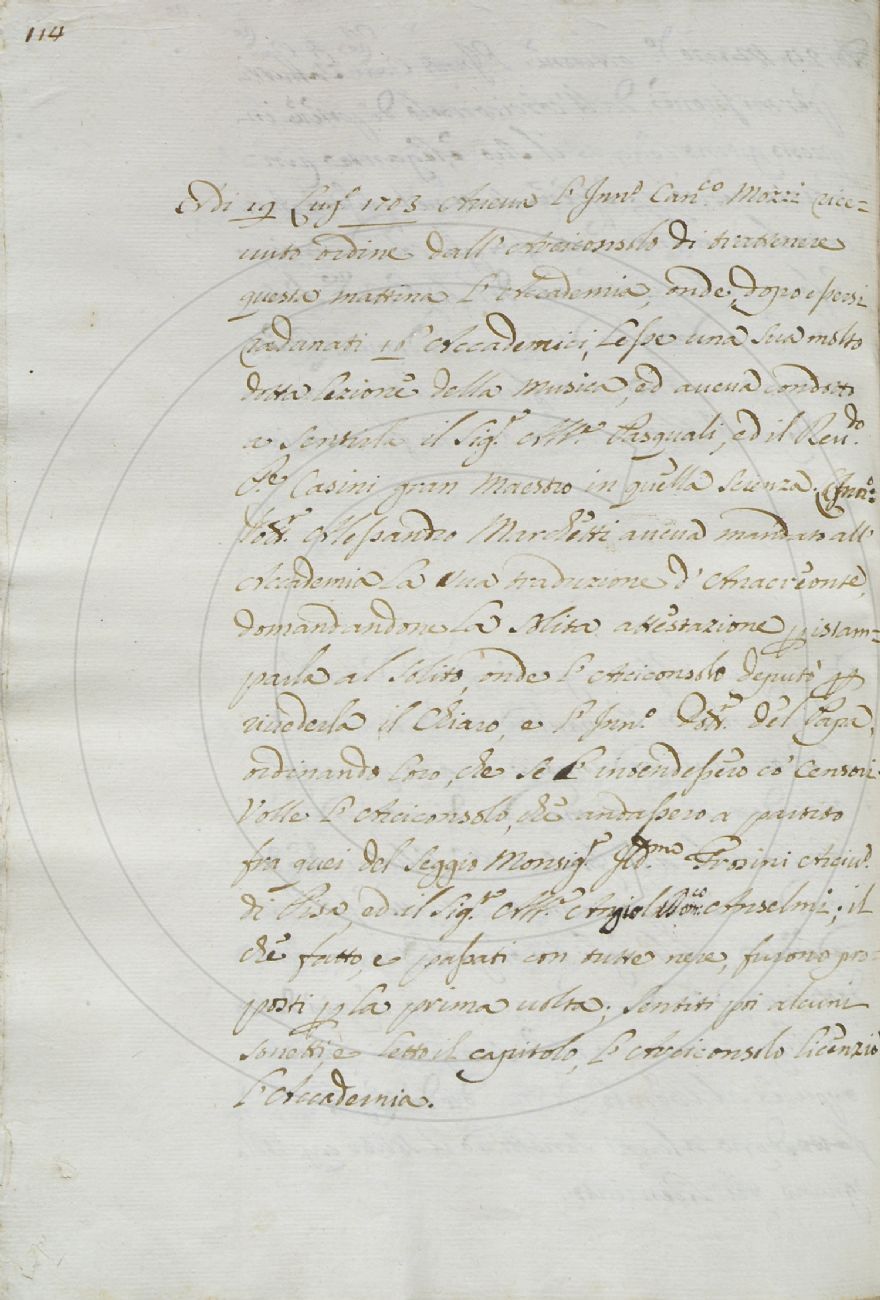 114
Adi 19 Lug.º 1703 Aveva l' Inn.º Can.co Mozzi rice=
vuto ordine dall' Arciconsolo di trattenere
questa mattina l' Accademia, onde, dopo essersi
radunati 18 Accademici, lesse una sua molto
dotta lezione della musica, ed aveva condotto
a sentirla il Sig.r Ab.e Pasquali, ed il Reu.do
P.e Casini gran Maestro in quella scienza. L'Inn.º
Dott.r Alessandro Marchetti aveva mandato all'
Accademia la sua traduzione d' Anacreonte,
domandandone la solita attestazione p istam=
parla al solito, onde l' Arciconsolo deputò p
rivederla il Chiaro, e l' Inn.º Dott.r del Papa,
ordinando loro, che se l' intendessero co' Censori.
Volle l' Arciconsolo, che andassero a partito
fra quei del seggio Monsig.r Ill.mo Frosini Arciv.º
di Pisa, ed il Sig.re Ab.e Angiol Dom.co Anselmi; il
che fatto, e passati con tutte nere, furono pro=
posti p la prima volta; sentiti poi alcuni
sonetti, e letto il capitolo, l' Arciconsolo licenziò
l' Accademia.